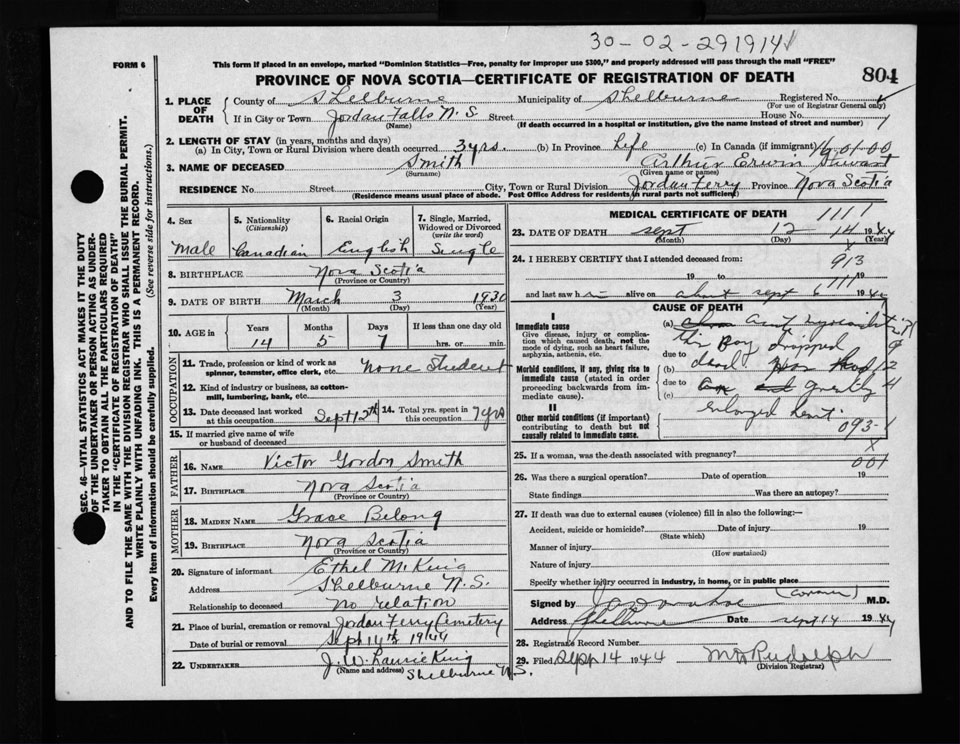 30-02-291914
FORM 6
This form if placed in an envelope, marked "Dominion Statistics—Free, penalty for improper use $300," and properly addressed will pass through the mail "FREE"
PROVINCE OF NOVA SCOTIA—CERTIFICATE OF REGISTRATION OF DEATH
804
1. PLACE OF DEATH
County of Shelburne Municipality of Shelburne Registered No.
(For use of Registrar General only)
If in City or Town Jordan Falls N.S. Street House No.
(Name) (If death occurred in a hospital or institution, give the name instead of street and number)
2. LENGTH OF STAY (in years, months and days)
(a) In City, Town or Rural Division where death occurred 3 yrs. (b) In Province Life (c) In Canada (if immigrant)
3. NAME OF DECEASED Smith Arthur Erwin Stewart
(Surname) (Given name or names)
RESIDENCE No. Street City, Town or Rural Division Jordan Ferry Province Nova Scotia
(Residence means usual place of abode. Post Office Address for residents in rural parts not sufficient)
SEC. 46—VITAL STATISTICS ACT MAKES IT THE DUTY
OF THE UNDERTAKER OR PERSON ACTING AS UNDER-
TAKER TO OBTAIN ALL THE PARTICULARS REQUIRED
IN THE "CERTIFICATE OF REGISTRATION OF DEATH"
AND TO FILE THE SAME WITH THE DIVISION REGISTRAR WHO SHALL ISSUE THE BURIAL PERMIT.
WRITE PLAINLY WITH UNFADING INK. THIS IS A PERMANENT RECORD.
Every item of information should be carefully supplied. (See reverse side for instructions.)
4. Sex 5. Nationality 6. Racial Origin 7. Single, Married,
(Citizenship) Widowed or Divorced
(write the word)
Male Canadian English Single
8. BIRTHPLACE Nova Scotia
(Province or Country)
9. DATE OF BIRTH March 3 1930
(Month) (Day) (Year)
10. AGE in Years Months Days If less than one day old
14 5 7 hrs. or min.
OCCUPATION
11. Trade, profession or kind of work as None Student
spinner, teamster, office clerk, etc.
12. Kind of industry or business, as cotton-
mill, lumbering, bank, etc.
13. Date deceased last worked
at this occupation Sept 12th 14. Total yrs. spent in
this occupation 7 yrs
15. If married give name of wife
or husband of deceased
FATHER
16. NAME Victor Gordon Smith
17. BIRTHPLACE Nova Scotia
(Province or Country)
MOTHER
18. MAIDEN NAME Grace Belong
19. BIRTHPLACE Nova Scotia
(Province or Country)
20. Signature of informant Ethel McKuig
Address Shelburne N.S.
Relationship to deceased no relation
21. Place of burial, cremation or removal Jordan Ferry Cemetery
Date of burial or removal Sept 14th 1944
22. UNDERTAKER J. W. Laurie King
(Name and address) Shelburne N.S.
MEDICAL CERTIFICATE OF DEATH 1111
23. DATE OF DEATH Sept 12 1944
(Month) (Day) (Year)
24. I HEREBY CERTIFY that I attended deceased from: 913
19 to 19
and last saw h alive on about Sept 6 1944
CAUSE OF DEATH
I
Immediate cause
Give disease, injury or complica-
tion which caused death, not the
mode of dying, such as heart failure,
asphyxia, asthenia, etc.
Morbid conditions, if any, giving rise to
immediate cause (stated in order
proceeding backwards from im-
mediate cause).
II
Other morbid conditions (if important)
contributing to death but not
causally related to immediate cause.
(a)
this boy dropped
due to
(b) dead
due to
(c) greatly
enlarged heart
093-1
25. If a woman, was the death associated with pregnancy?
001
26. Was there a surgical operation? Date of operation 19
State findings Was there an autopsy?
27. If death was due to external causes (violence) fill in also the following:—
Accident, suicide or homicide? Date of injury 19
(State which)
Manner of injury
(How sustained)
Nature of injury
Specify whether injury occurred in industry, in home, or in public place
Signed by (Coroner) M.D.
Address Shelburne Date Sept 14 1944
28. Registrar's Record Number
29. Filed Sept 14 1944 M H Rudolph
(Division Registrar)